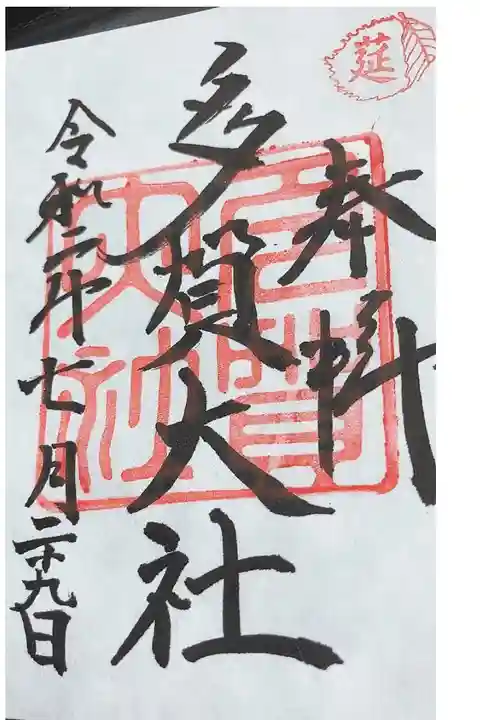 莚
奉拝
多賀大社
令和二年七月二十九日
多賀大社